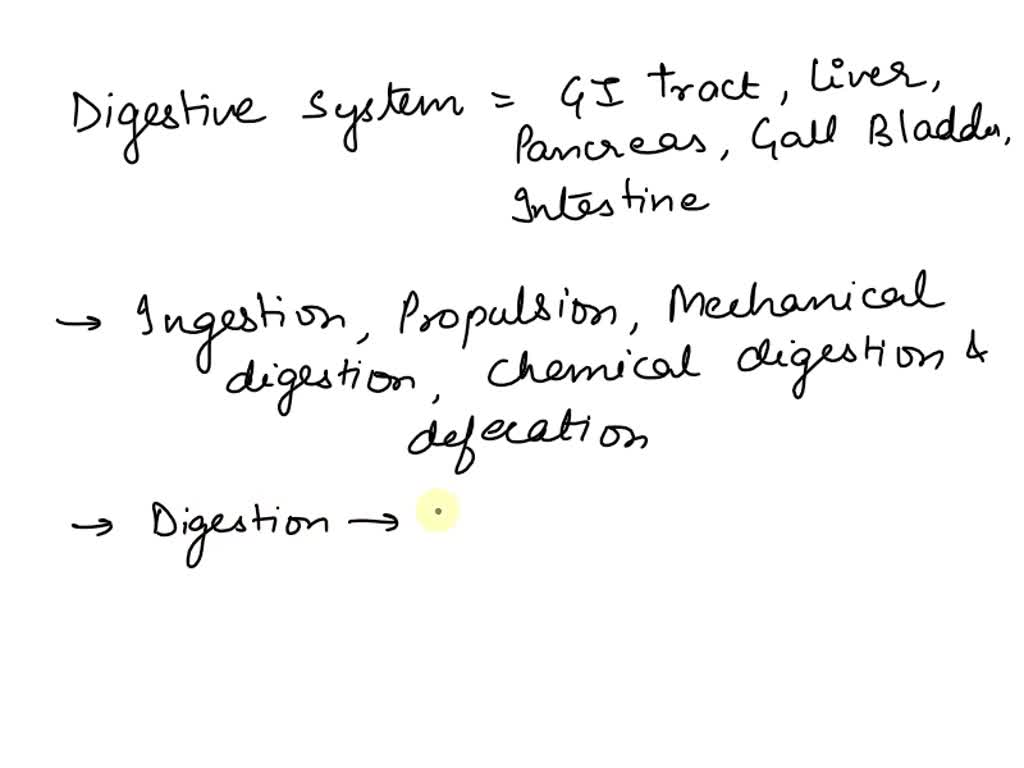 Digestive System = GI tract, Liver,
Pancreas, Gall Bladder,
Intestine
→ Ingestion, Propulsion, Mechanical
digestion, chemical digestion &
defecation
→ Digestion →